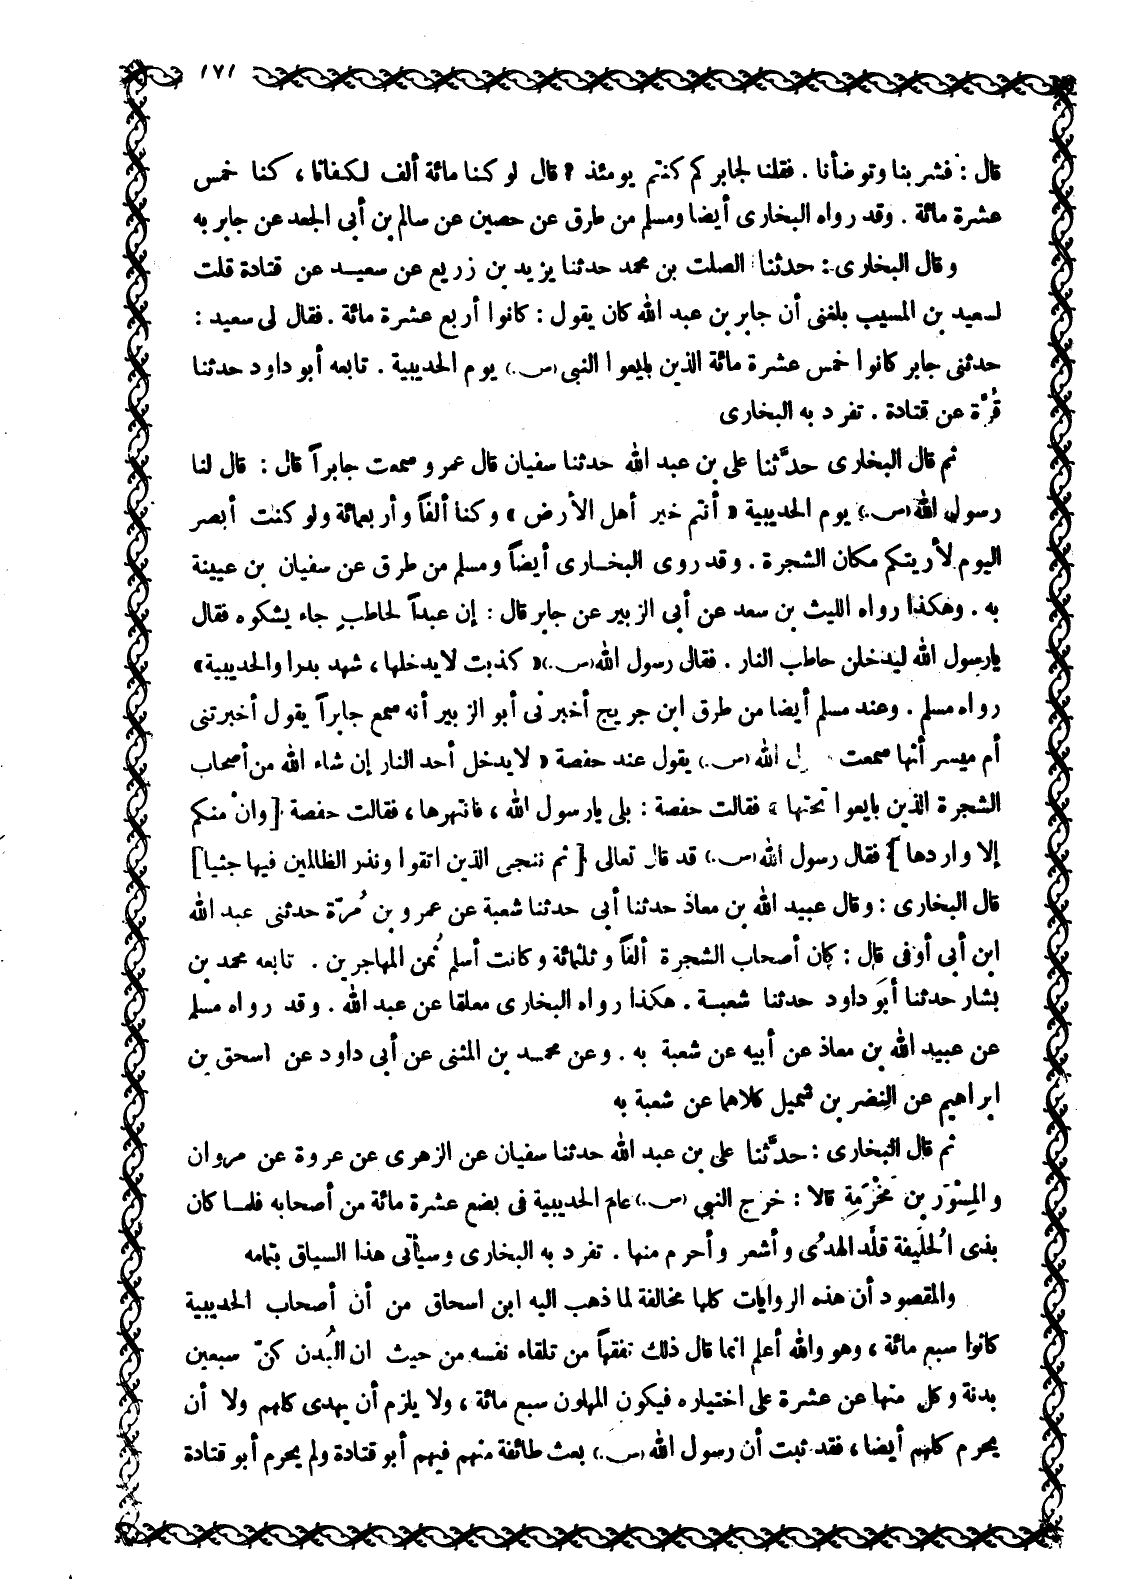 ١٧١
قال : فشربنا وتوضأنا . فقلنا لجابر كم كنتم يومئذ ? قال لو كنا مائة ألف لكفانا ، كنا خمس
عشرة مائة . وقد رواه البخارى أيضا ومسلم من طرق عن حصين عن سالم بن أبى الجعد عن جابر به
وقال البخارى : حدثنا الصلت بن محمد حدثنا يزيد بن زريع عن سعيد عن قتادة قلت
لسعيد بن المسيب بلغنى أن جابر بن عبد الله كان يقول : كانوا أربع عشرة مائة . فقال لى سعيد :
حدثنى جابر كانوا خمس عشرة مائة الذين بايعوا النبى (س.) يوم الحديبية . تابعه أبو داود حدثنا
قُرَّة عن قتادة . تفرد به البخارى
ثم قال البخارى حدَّثنا على بن عبد الله حدثنا سفيان قال عمرو سمعت جابراً قال : قال لنا
رسول الله (س.) يوم الحديبية « أنتم خير أهل الأرض » وكنا ألفاً وأربعمائة ولو كنت أبصر
اليوم لأريتكم مكان الشجرة . وقد روى البخارى أيضاً ومسلم من طرق عن سفيان بن عيينة
به . وهكذا رواه الليث بن سعد عن أبى الزبير عن جابر قال : إن عبداً لحاطبٍ جاء يشكوه فقال
يارسول الله ليدخلن حاطب النار . فقال رسول الله (س.) « كذبت لايدخلها ، شهد بدرا والحديبية »
رواه مسلم . وعند مسلم أيضا من طرق ابن جريج أخبرنى أبو الزبير أنه سمع جابراً يقول أخبرتنى
أم ميسر أنها سمعت ل الله (س.) يقول عند حفصة « لايدخل أحد النار إن شاء الله من أصحاب
الشجرة الذين بايعوا تحتها » فقالت حفصة : بلى يارسول الله ، فانتهرها ، فقالت حفصة [ وانْ منكم
إلا واردها ] فقال رسول الله (س.) قد قال تعالى [ ثم ننجى الذين اتقوا ونذر الظالمين فيها جثيا ]
قال البخارى : وقال عبيد الله بن معاذ حدثنا أبى حدثنا شعبة عن عمرو بن مُرّة حدثنى عبد الله
ابن أبى أوفى قال : كان أصحاب الشجرة ألفاً وثلثمائة وكانت أسلم ثُمن المهاجرين . تابعه محمد بن
بشار حدثنا أبو داود حدثنا شعبة . هكذا رواه البخارى معلقا عن عبد الله . وقد رواه مسلم
عن عبيد الله بن معاذ عن أبيه عن شعبة به . وعن محمد بن المثنى عن أبى داود عن اسحق بن
ابراهيم عن النضر بن شميل كلاهما عن شعبة به
ثم قال البخارى : حدَّثنا على بن عبد الله حدثنا سفيان عن الزهرى عن عروة عن مروان
والمِسْوَر بن مَخْرَمة قالا : خرج النبى (س.) عام الحديبية فى بضع عشرة مائة من أصحابه فلما كان
بذى الحُلَيفة قلَّد الهدْى وأشعر وأحرم منها . تفرد به البخارى وسيأتى هذا السياق بتمامه
والمقصود أن هذه الروايات كلها مخالفة لما ذهب اليه ابن اسحاق من أن أصحاب الحديبية
كانوا سبع مائة ، وهو والله أعلم انما قال ذلك تفقهاً من تلقاء نفسه من حيث ان البُدن كنّ سبعين
بدنة وكل منها عن عشرة على اختياره فيكون المهلون سبع مائة ، ولا يلزم أن يهدى كلهم ولا أن
يحرم كلهم أيضا ، فقد ثبت أن رسول الله (س.) بعث طائفة منهم فيهم أبو قتادة ولم يحرم أبو قتادة